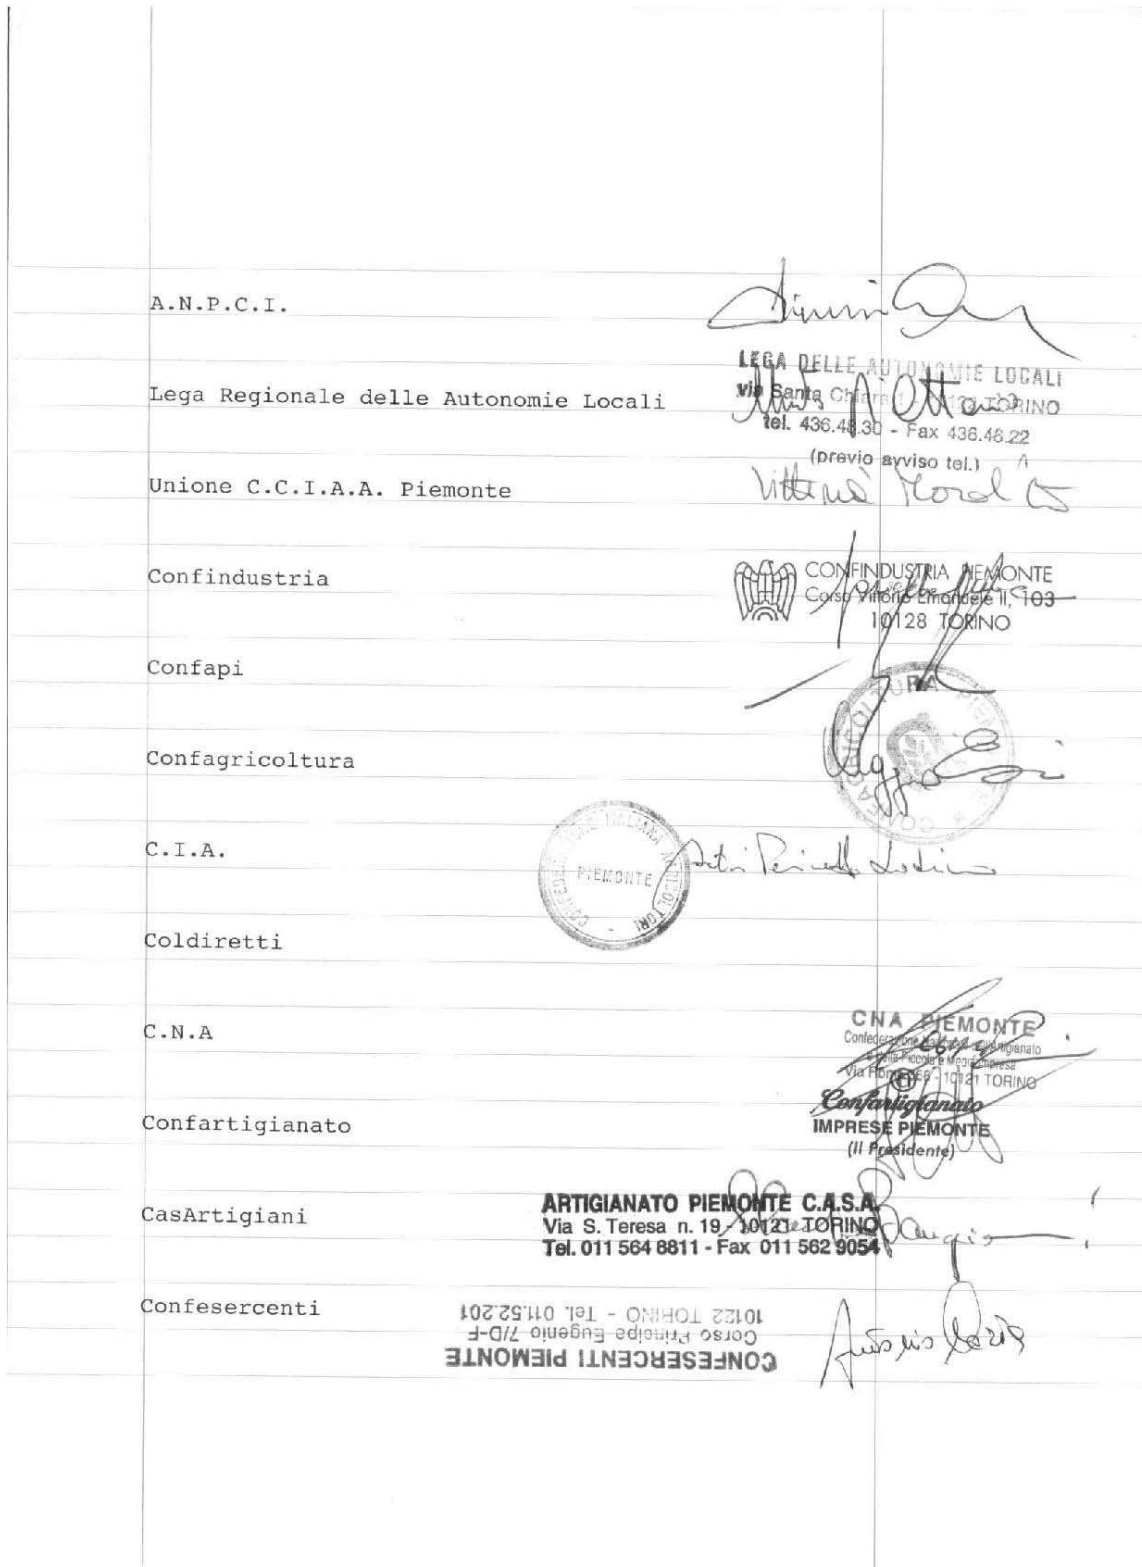 A.N.P.C.I.
LEGA DELLE AUTONOMIE LOCALI
Lega Regionale delle Autonomie Locali
via Santa Chiara 1 - 10122 TORINO
tel. 436.48.30 - Fax 436.48.22
(previo avviso tel.)
Unione C.C.I.A.A. Piemonte
Confindustria
CONFINDUSTRIA PIEMONTE
Corso Vittorio Emanuele II, 103
10128 TORINO
Confapi
CONFAGRICOLTURA PIEMONTE
Confagricoltura
C.I.A.
CONFEDERAZIONE ITALIANA AGRICOLTORI
PIEMONTE
Coldiretti
C.N.A
CNA PIEMONTE
Confederazione Nazionale dell'Artigianato
e della Piccola e Media Impresa
Via Roma 366 - 10121 TORINO
Confartigianato
Confartigianato
IMPRESE PIEMONTE
(Il Presidente)
CasArtigiani
ARTIGIANATO PIEMONTE C.A.S.A.
Via S. Teresa n. 19 - 10121 TORINO
Tel. 011 564 8811 - Fax 011 562 9054
Confesercenti
CONFESERCENTI PIEMONTE
Corso Principe Eugenio 7/D-F
10122 TORINO - Tel. 011.52.201